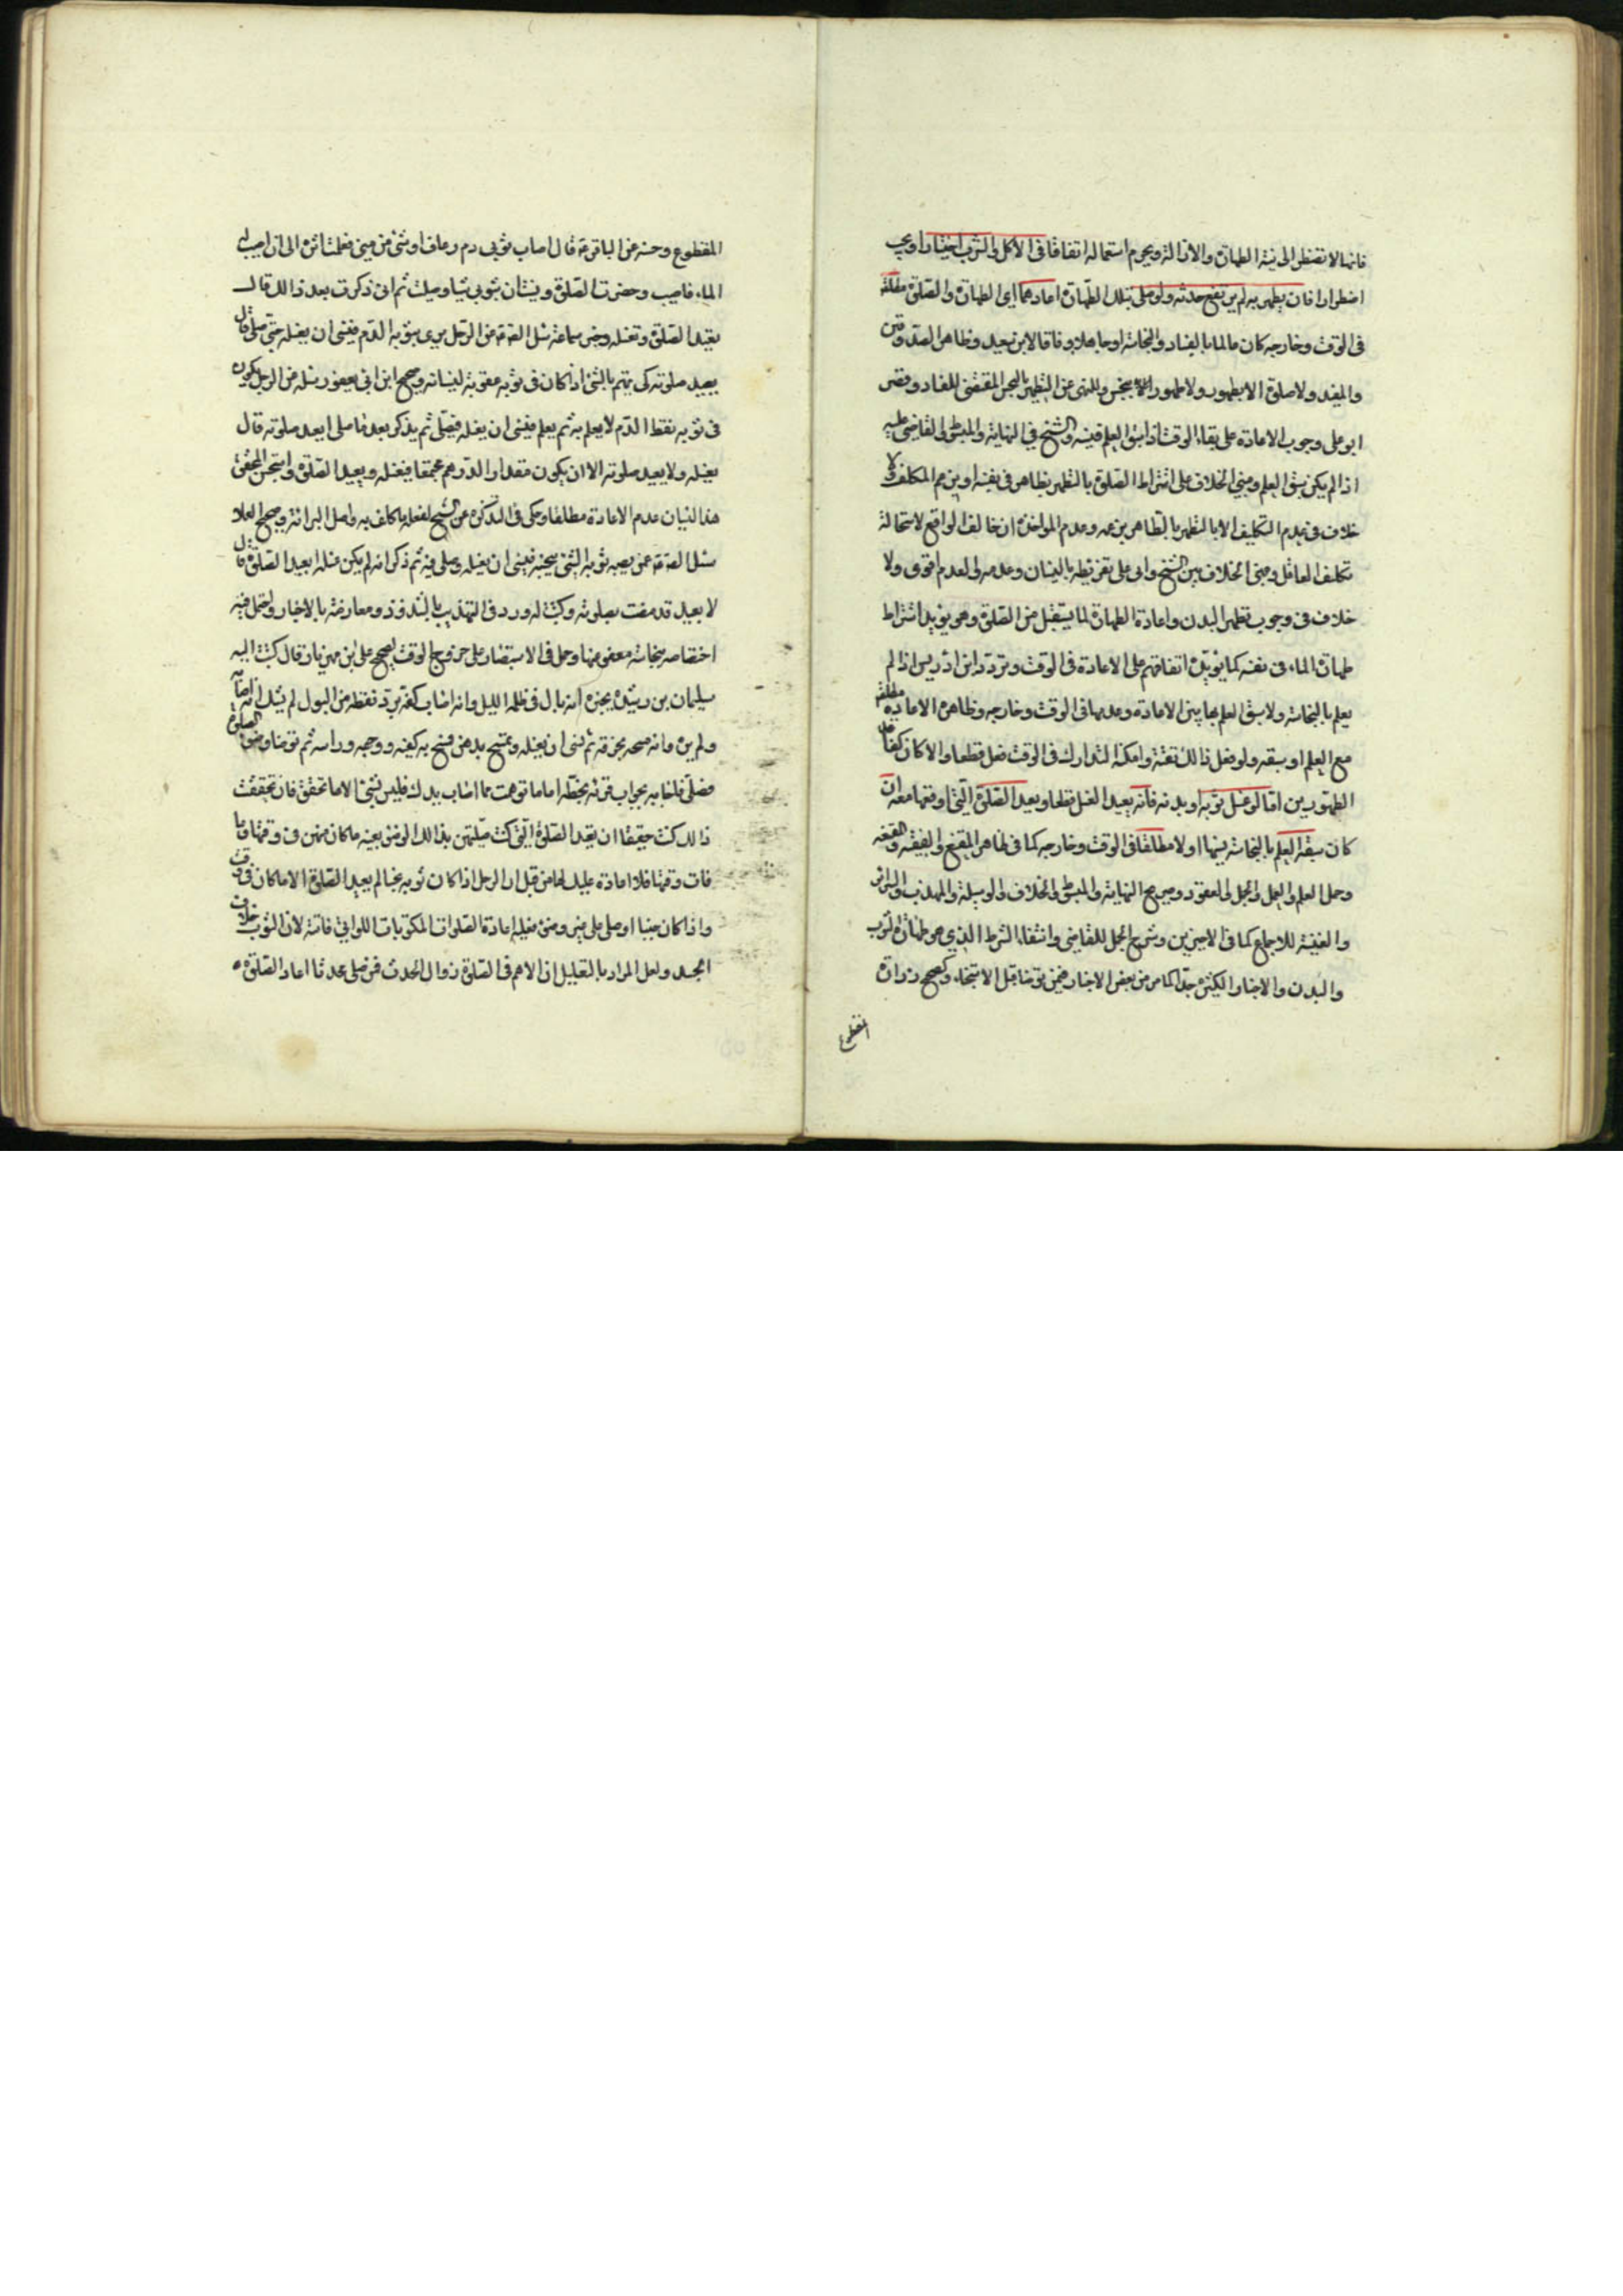 فانها لا تفتقر الى نية الطهارة والازالة ويحرم استعماله اتفاقا في الاكل والشرب اختيارا ويجب
اضطرارا فان تطهر به لم يرتفع حدثه ولو صلى بتلك الطهارة اعادهما اي الطهارة والصلوة مطلقا
في الوقت وخارجه كان عالما بالفساد والنجاسة او جاهلا وفاقا لابن سعيد وظاهر الصدوقين
والمفيد ولا صلوة الا بطهور ولا طهور الا بنجس وللنهى عن التطهر بالنجس المقتضى للفساد وقصر
ابو على وجوب الاعادة على بقاء الوقت اذا سبق العلم فنسيه والشيخ في النهاية والمبسوط والقاضى عليه
اذا لم يكن سبق العلم ومبنى الخلاف على اشتراط الصلوة بالتطهر بطاهر في نفسه او بزعم المكلف ولا
خلاف في عدم التكليف الا بالتطهر بالطاهر بزعمه وعدم المواخذة ان خالف الواقع لاستحالة
تكليف الغافل ومبنى الخلاف بين الشيخ وابى على تفريطه بالنسيان وعدمه والعدم اقوى ولا
خلاف في وجوب تطهير البدن واعادة الطهارة لما يستقبل من الصلوة وهو يؤيد اشتراط
طهارة الماء في نفسه كما يؤيده اتفاقهم على الاعادة في الوقت وتردد ابن ادريس اذا لم
يعلم بالنجاسة ولا سبق العلم بها بين الاعادة وعدمها في الوقت وخارجه وظاهره الاعادة مطلقا
مع العلم او سبقه ولو فعل ذالك تقية وامكنه التدارك في الوقت فعل قطعا والا كان كفاقد
الطهورين اما لو غسل ثوبه او بدنه فانه يعيد الغسل قطعا ويعيد الصلوة التي اوقعها معه ان
كان سبقه العلم بالنجاسة فنسيها اولا مطلقا في الوقت وخارجه كما في ظاهر المقنع والفقيه والمقنعه
وجمل العلم والعمل والجمل والعقود وصريح النهاية والمبسوط والخلاف والوسيلة والمهذب والسرائر
والغنية للاجماع كما في الاخيرين وشرح الجمل للقاضى وانتفاء الشرط الذي هو طهارة الثوب
والبدن والاخبار الكثيرة جدا كما مر من بعض الاخبار فيمن توضا قبل الاستنجاء وكصحيح زرارة
المقطوع
المقطوع وحسنه عن الباقر ع قال اصاب ثوبى دم رعاف او شئ من منى فعلمت اثره الى ان اصيب له
الماء فاصبت وحضرت الصلوة ونسيت ان بثوبى شيا وصليت ثم انى ذكرت بعد ذالك قال
تعيد الصلوة وتغسله وخبر سماعة سئل الصادق ع عن الرجل يرى بثوبه الدم فينسى ان يغسله حتى يصلى قال
يعيد صلوته كى يهتم بالشئ اذا كان في ثوبه عقوبة لنسيانه وصحيح ابن ابى يعفور سئله عن الرجل يكون
في ثوبه نقط الدم لا يعلم به ثم يعلم فينسى ان يغسله فيصلى ثم يذكر بعد ما صلى ايعيد صلوته قال
يغسله ولا يعيد صلوته الا ان يكون مقدار الدرهم مجتمعا فيغسله ويعيد الصلوة واستحسن المحقق
هذا النسيان عدم الاعادة مطلقا وحكى في التذكرة عن الشيخ لفعله ما كلف به واصل البرائة وصحيح العلا
سئل الصادق ع عمن يصيب ثوبه الشئ ينجسه فينسى ان يغسله ويصلى فيه ثم ذكر انه لم يكن غسله ايعيد الصلوة قال
لا يعيد قد مضت صلوته وكتبت له ورد في التهذيب بالشذوذ ومعارضة بالاخبار ويحتمل فيه
اختصاصه بنجاسة معفو عنها وحمل في الاستبصار على خروج الوقت لصحيح على بن مهزيار قال كتب اليه
سليمان بن رشيد يخبره انه بال في ظلمة الليل وانه اصاب كفه برد نقطة من البول لم يشك انه اصابه
ولم يره وانه مسحه بخرقة ثم نسى ان يغسله وتمسح بدهن فمسح به كفيه ووجهه وراسه ثم توضا وضوء الصلوة
فصلى فاجابه بجواب قراته بخطه اما ما توهمت مما اصاب يدك فليس بشئ الا ما تحقق فان تحققت
ذالك كنت حقيقا ان تعيد الصلوة التى كنت صليتهن بذالك الوضوء بعينه ما كان منهن في وقتها وما
فات وقتها فلا اعادة عليك لها من قبل ان الرجل اذا كان ثوبه نجسا لم يعد الصلوة الا ما كان في وقت
واذا كان جنبا او صلى على غير وضوء فعليه اعادة الصلوات المكتوبات اللواتى فاتته لان الثوب خلاف
الجسد ولعل المراد بالتعليل ان الاهم في الصلوة زوال الحدث فمن صلى محدثا اعاد الصلوة